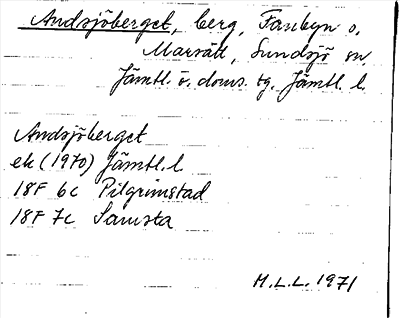 Andsjöberget, berg, Fanbyn o.
Marsätt, Sundsjö sn.
Jämtl. ö. doms. tg. Jämtl. l.
Andsjöberget
ek (1970) Jämtl. l.
18F 6c Pilgrimstad
18F 7c Samsta
M.L.L. 1971